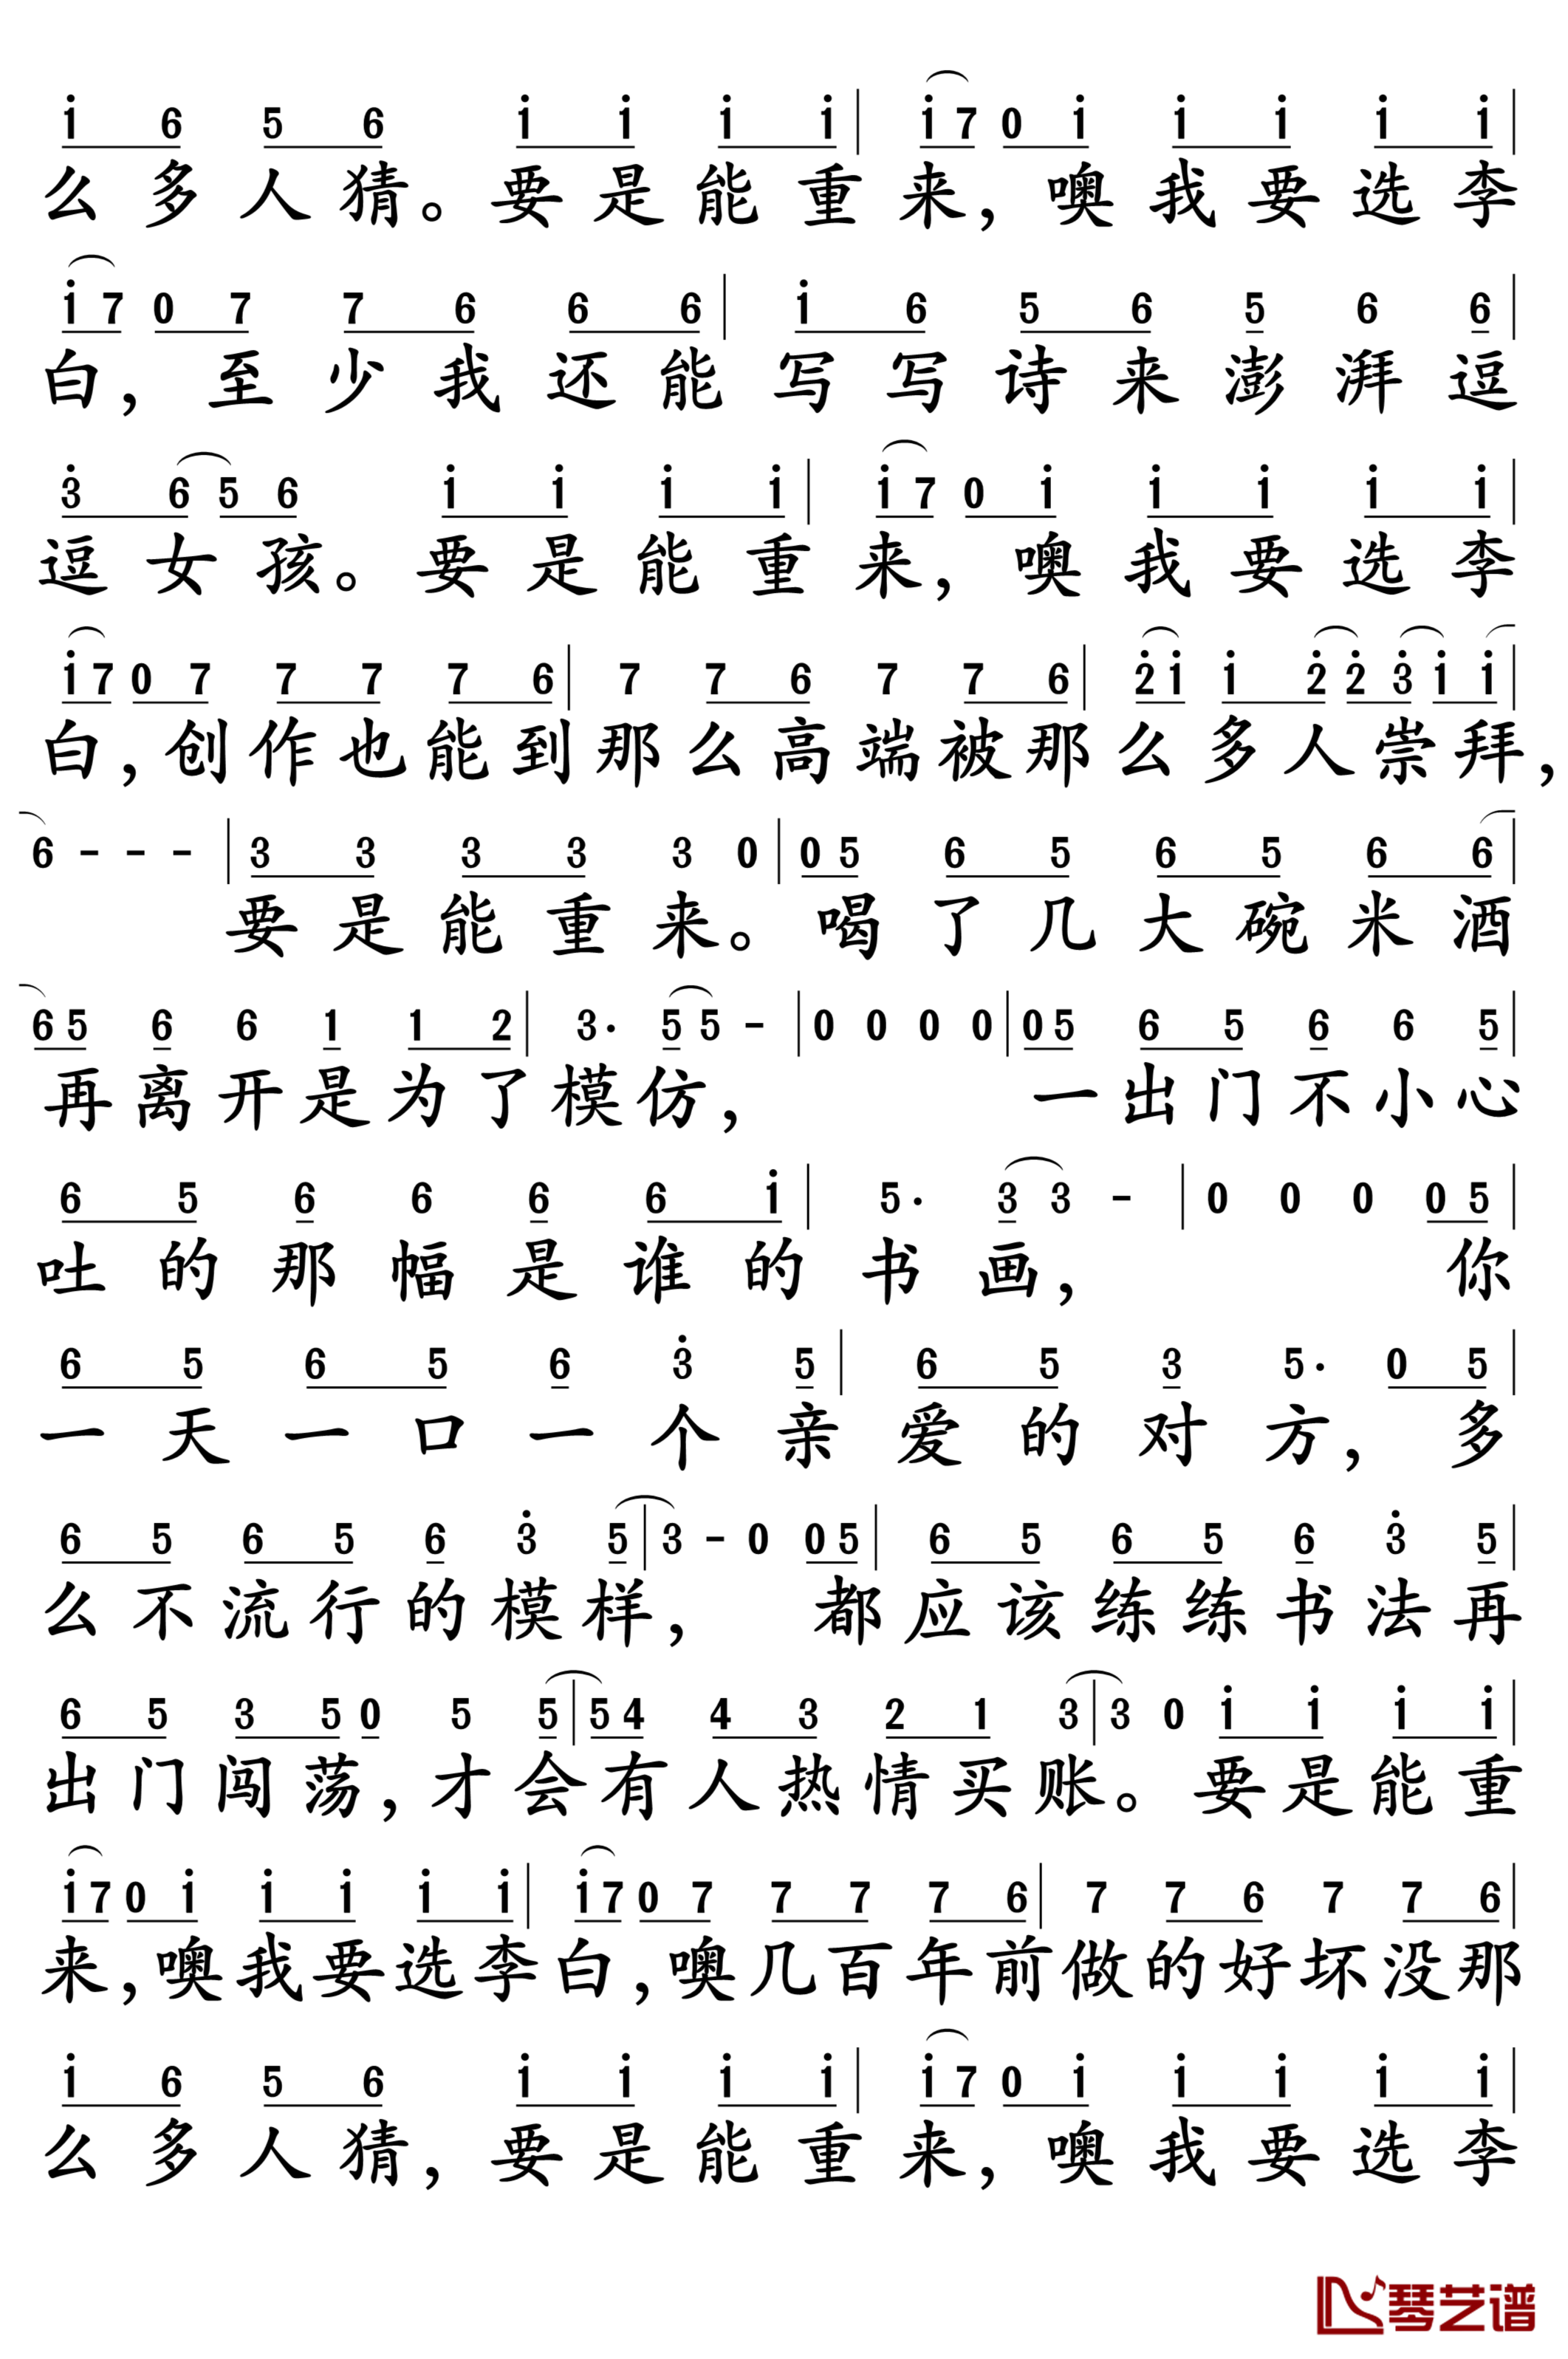 i 6 5 6 i i i i | i 7 0 i i i i i |
么多人猜。要是能重来,噢我要选李
i 7 0 7 7 6 6 6 | i 6 5 6 5 6 6 |
白,至少我还能写写诗来澎湃逗
3 6 5 6 i i i i | i 7 0 i i i i i |
逗女孩。要是能重来,噢我要选李
i 7 0 7 7 7 7 6 | 7 7 6 7 7 6 | 2 i i 2 2 3 i i |
白,创作也能到那么高端被那么多人崇拜,
6 - - - | 3 3 3 3 3 0 | 0 5 6 5 6 5 6 6 |
要是能重来。喝了几大碗米酒
6 5 6 6 1 1 2 | 3· 5 5 - | 0 0 0 0 | 0 5 6 5 6 6 5 |
再离开是为了模仿,一出门不小心
6 5 6 6 6 6 i | 5· 3 3 - | 0 0 0 0 5 |
吐的那幅是谁的书画,你
6 5 6 5 6 3 5 | 6 5 3 5· 0 5 |
一天一口一个亲爱的对方,多
6 5 6 5 6 3 5 | 3 - 0 0 5 | 6 5 6 5 6 3 5 |
么不流行的模样,都应该练练书法再
6 5 3 5 0 5 5 | 5 4 4 3 2 1 3 | 3 0 i i i i |
出门闯荡,才会有人热情买账。要是能重
i 7 0 i i i i i | i 7 0 7 7 7 7 6 | 7 7 6 7 7 6 |
来,噢我要选李白,噢几百年前做的好坏没那
i 6 5 6 i i i i | i 7 0 i i i i i |
么多人猜,要是能重来,噢我要选李
琴艺谱